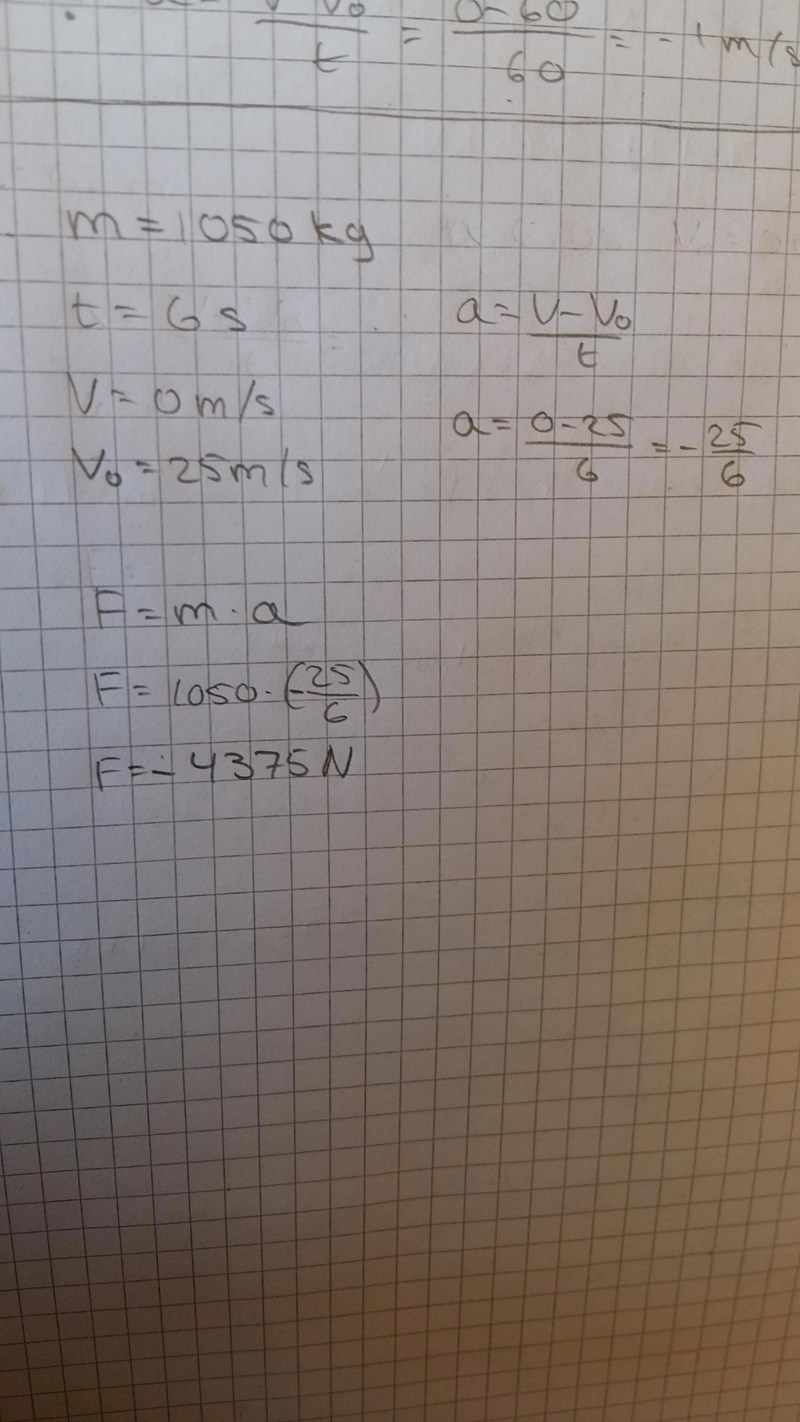 V₀/t = 0-60/60 = - 1 m/s
m = 1050 kg
t = 6 s
V = 0 m/s
V₀ = 25 m/s
a = V - V₀/t
a = 0-25/6 = - 25/6
F = m · a
F = 1050 · (-25/6)
F = - 4375 N